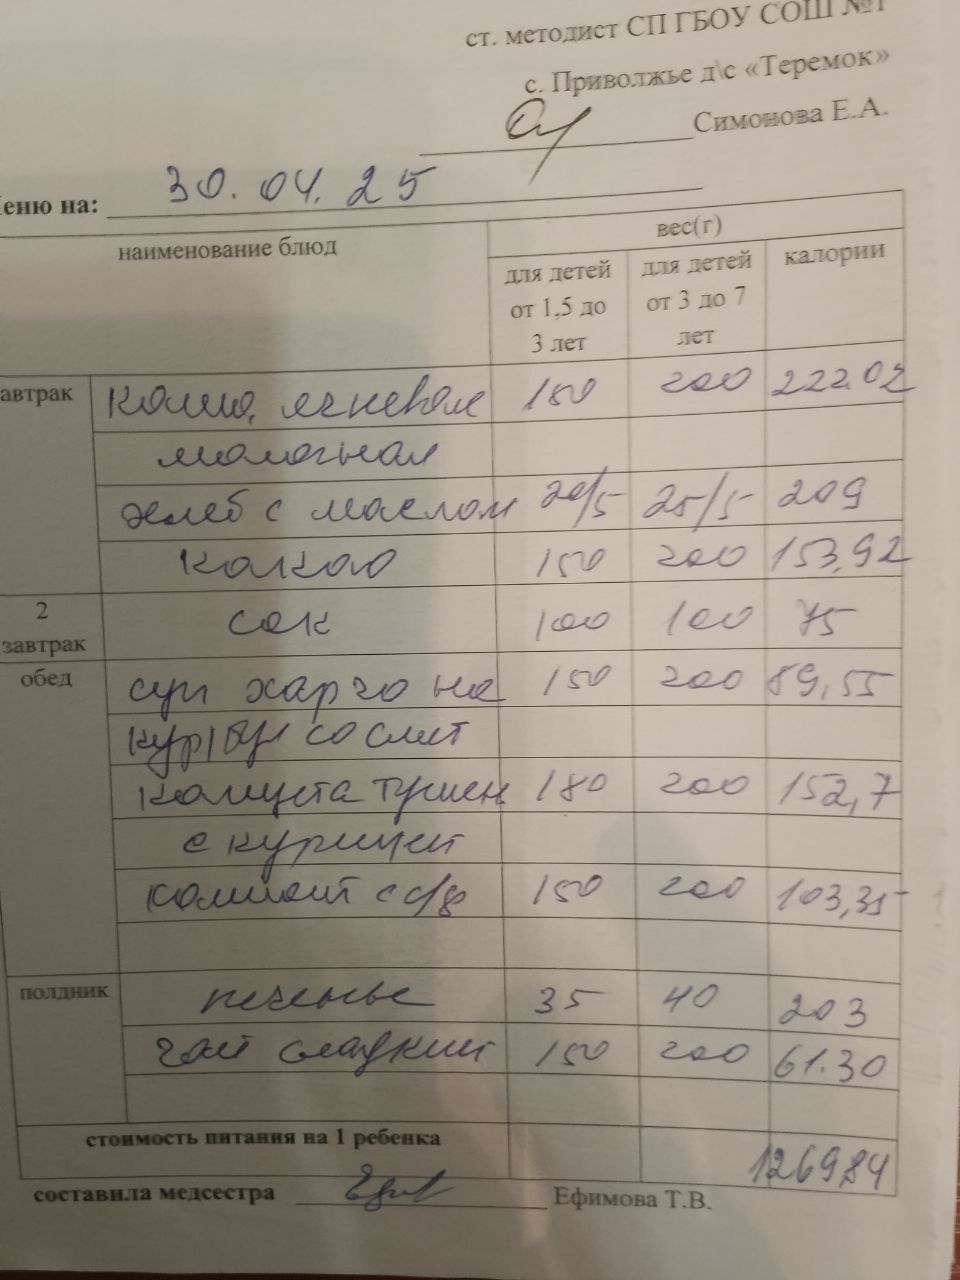 ст. методист СП ГБОУ СОШ №1
с. Приволжье д\с «Теремок»
Симонова Е.А.
еню на: 30.04.25
наименование блюд вес(г)
для детей от 1,5 до 3 лет для детей от 3 до 7 лет калории
автрак каша ячневая 150 200 222.02
молочная
хлеб с маслом 20/5 25/5 209
какао 150 200 153,92
2 завтрак сок 100 100 75
обед суп харчо на 150 200 89,55
кур/бул со смет
капуста тушен 180 200 152,7
с курицей
компот с с/ф 150 200 103,35
полдник печенье 35 40 203
чай сладкий 150 200 61.30
стоимость питания на 1 ребенка 1269,84
составила медсестра Ефимова Т.В.